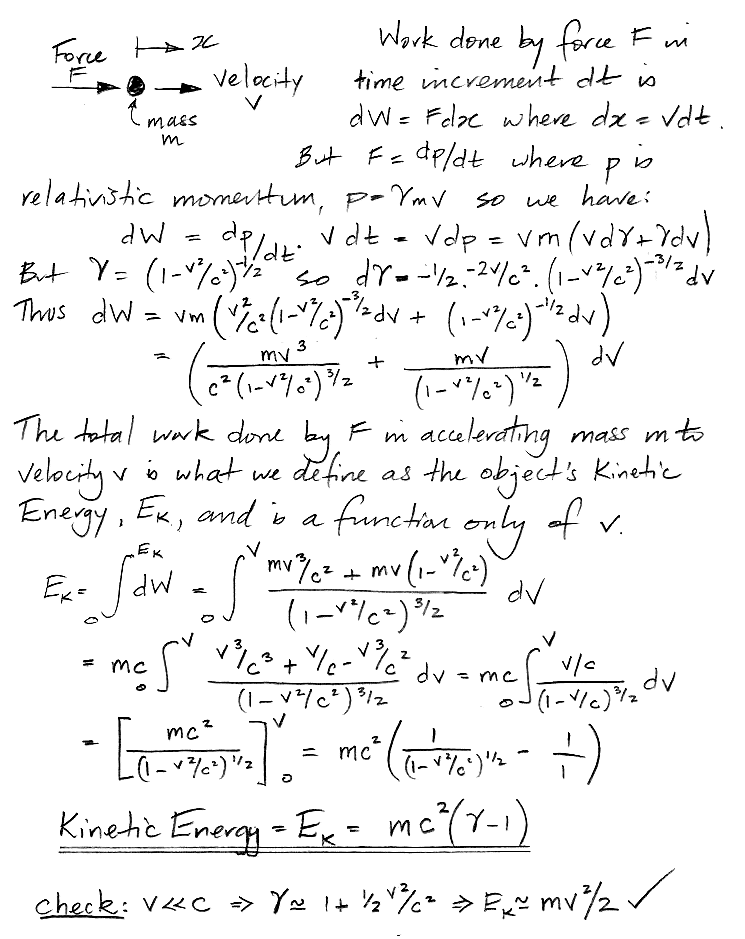 Force
F
x
velocity
v
mass
m
Work done by force F in
time increment dt is
dW = Fdx where dx = vdt.
But F = dp/dt where p is
relativistic momentum, p=γmv so we have:
dW = dp/dt. v dt = vdp = vm(vdγ+γdv)
But γ = (1-v²/c²)^-1/2 so dγ = -1/2.-2v/c².(1-v²/c²)^-3/2 dv
Thus dW = vm(v²/c²(1-v²/c²)^-3/2 dv + (1-v²/c²)^-1/2 dv)
= (mv³/c²(1-v²/c²)^3/2 + mv/(1-v²/c²)^1/2) dv
The total work done by F in accelerating mass m to
velocity v is what we define as the object's Kinetic
Energy, E_K, and is a function only of v.
E_K = ∫_0^E_K dW = ∫_0^v (mv³/c² + mv(1-v²/c²))/(1-v²/c²)^3/2 dv
= mc ∫_0^v (v³/c³ + v/c - v³/c²)/(1-v²/c²)^3/2 dv = mc ∫_0^v (v/c)/(1-v/c)^3/2 dv
= [mc²/(1-v²/c²)^1/2]_0^v = mc²(1/(1-v²/c²)^1/2 - 1/1)
Kinetic Energy = E_K = mc²(γ-1)
check: v<<c ⇒ γ ≃ 1+ 1/2 v²/c² ⇒ E_K ≃ mv²/2 ✓